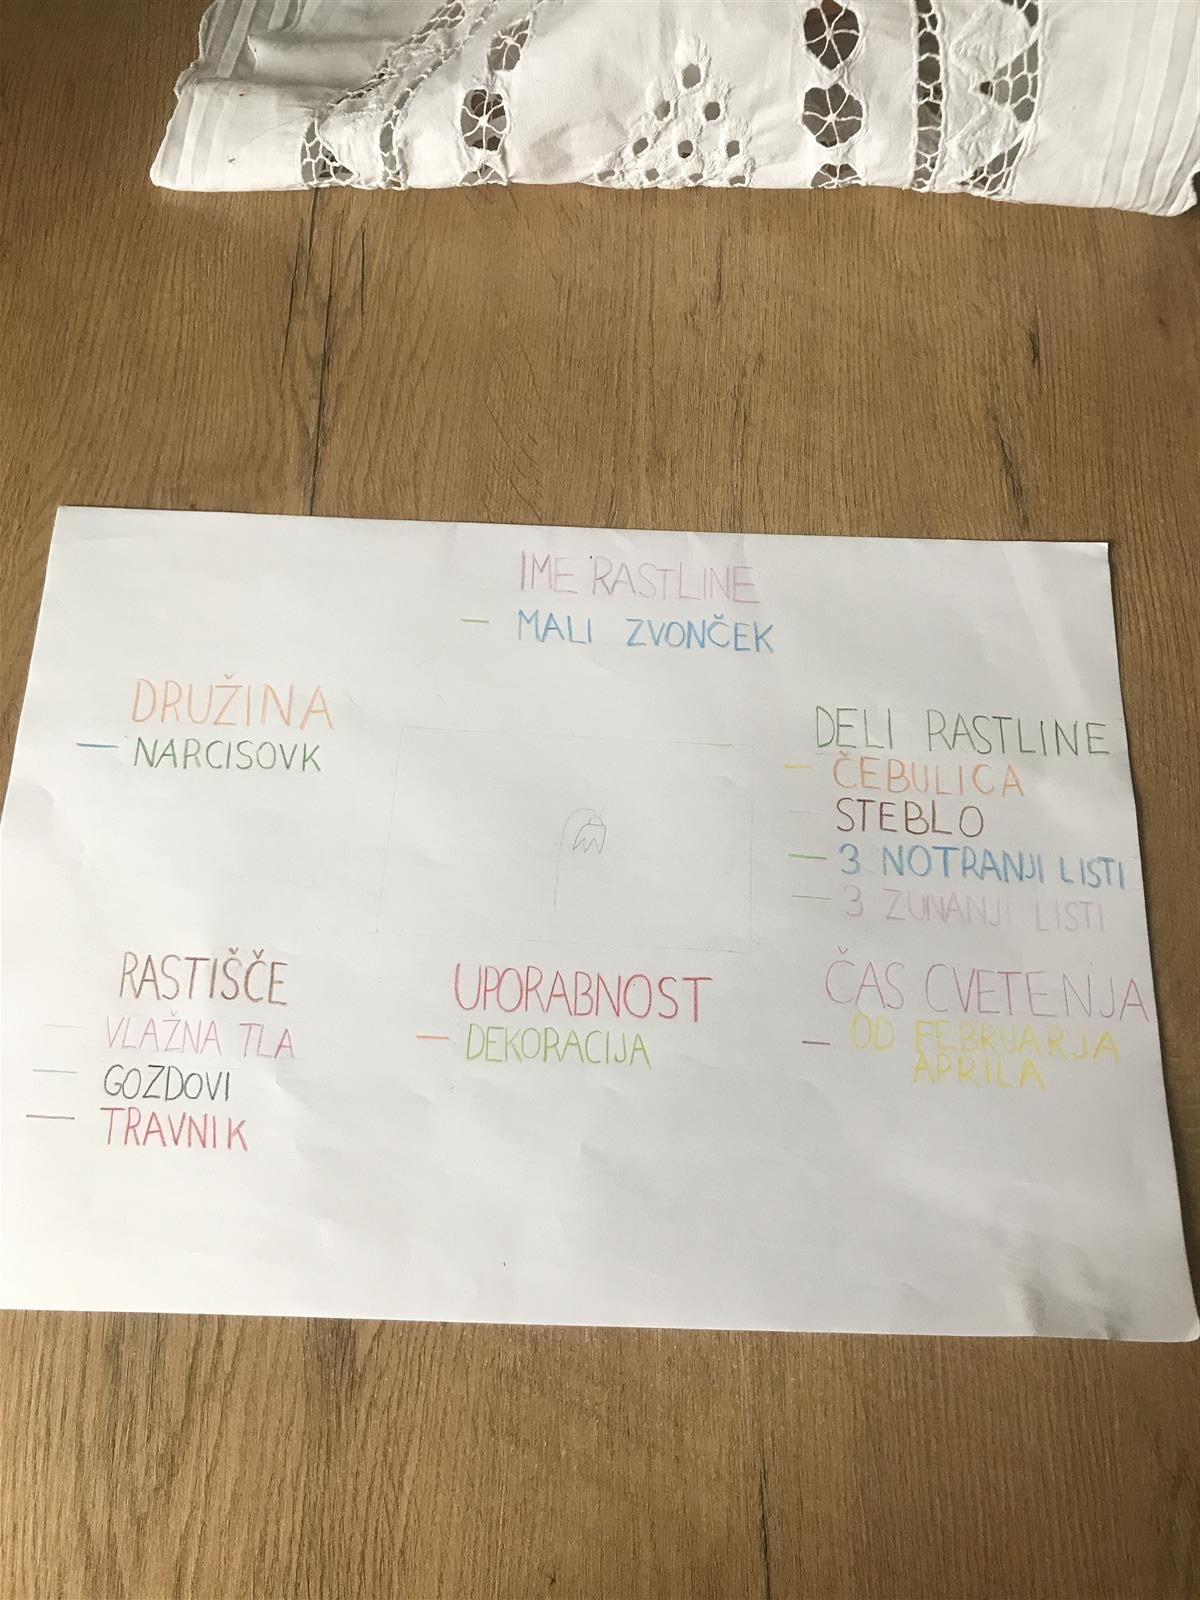 IME RASTLINE
- MALI ZVONČEK
DRUŽINA
- NARCISOVK
DELI RASTLINE
- ČEBULICA
- STEBLO
- 3 NOTRANJI LISTI
- 3 ZUNANJI LISTI
RASTIŠČE
- VLAŽNA TLA
- GOZDOVI
- TRAVNIK
UPORABNOST
- DEKORACIJA
ČAS CVETENJA
- OD FEBRUARJA
APRILA